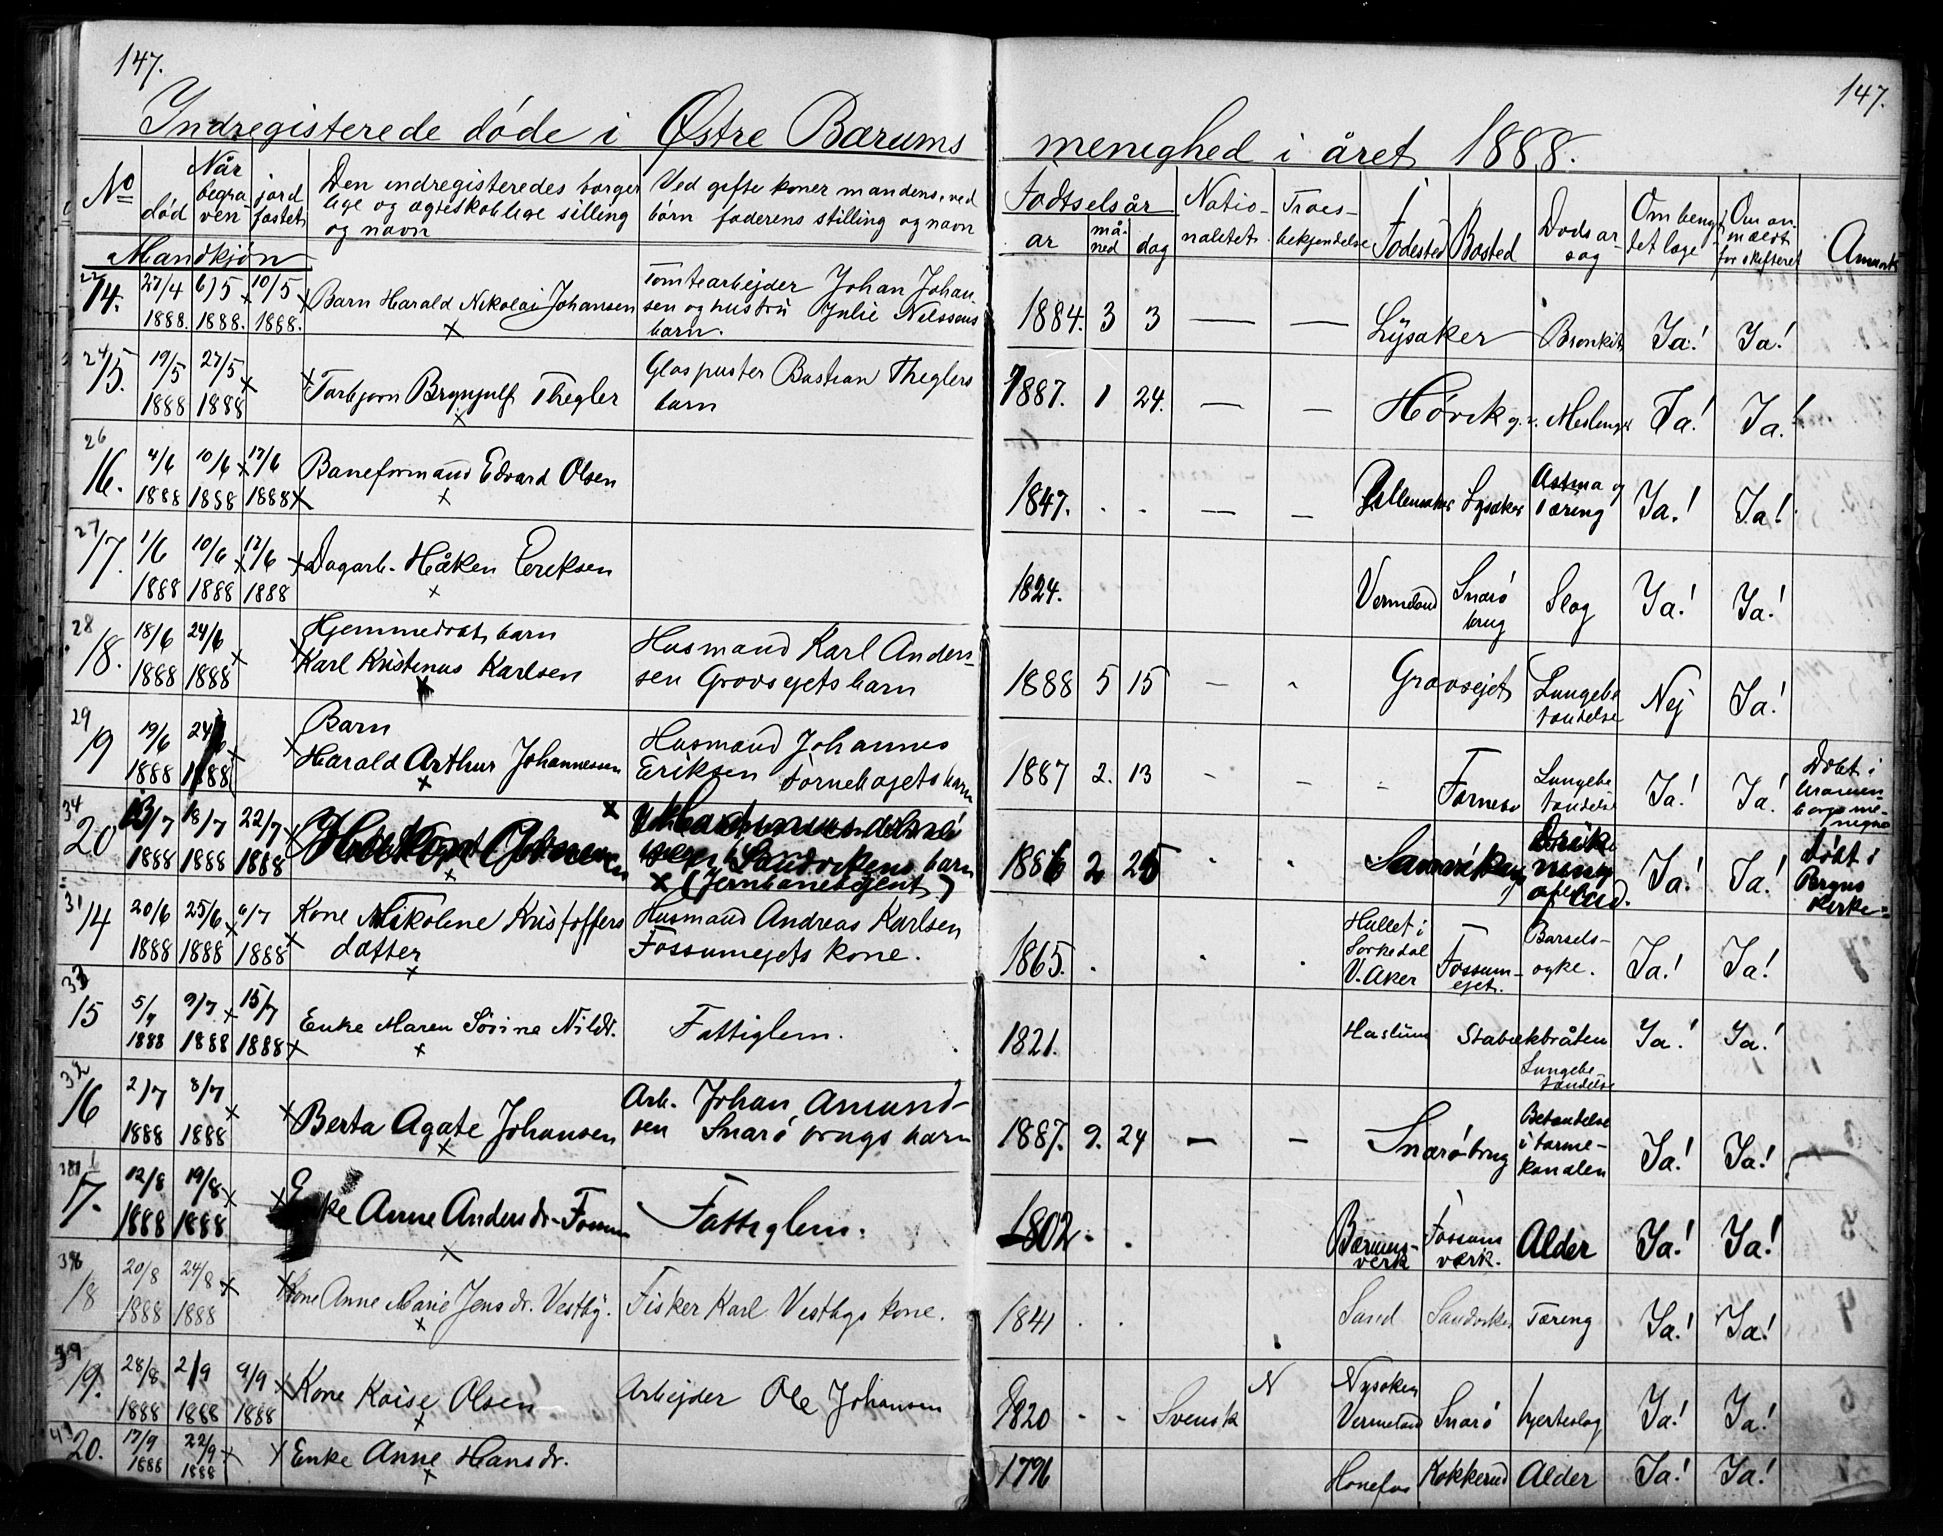 147.
147.
Indregisterede døde i Østre Bærums menighed i året 1888.
No død Når begraven jordfæstet Den indregisteredes borgerlige og ægteskablige stilling og navn Ved gifte koner mandens, ved børn faderens stilling og navn Fødselsår år måned dag Nationalitet Troesbekjendelse Fødested Bosted Dødsårsag Om benyttet læge Om anmeldt for skifteret Anmerk
Mandkjøn
14. 27/4 1888. 6/5 1888. 10/5 1888. Barn Harald Nikolai Johansen Tomtearbejder Johan Johansen og hustru Julie Nilssens barn. 1884. 3 3 — — Lysaker Bronkit Ja! Ja!
24/15. 19/5 1888 27/5 1888 Torbjørn Brynjulf Thegler Glaspuster Bastian Theglers barn 1887. 1 24. — — Høvik g.v. Meslinger Ja! Ja!
26 16. 4/6 1888 10/6 1888 17/6 1888 Baneformand Edvard Olsen 1847. — — Lysaker Astma og Tæring Ja! Ja!
27 17. 1/6 1888 10/6 1888 17/6 1888 Dagarb. Håken Eriksen 1824. Vermeland Snarøbrug Slag Ja! Ja!
28 18. 18/6 1888 24/6 1888 Hjemmedøbt barn Karl Kristinus Karlsen Husmand Karl Anderssen Gravsejets barn 1888 5 15 — Gravsejet Lungebetændelse Nej Ja!
29 19 19/6 1888 24/6 1888 Barn Harald Arthur Johannessen Husmand Johannes Eriksen Fornebøejets barn 1887 2. 13 Fornebo Lungebetændelse Ja! Ja! Døbt i
34 20 13/7 1888 18/7 1888 22/7 1888 Sandvikens barn (Jernbanebetjent) 1886 2 25 Sandviken Ja! Ja! Døbt i Bryns kirke
31 14 20/6 1888 25/6 1888 6/7 1888 Kone Nikoline Kristoffersdatter Husmand Andreas Karlsen Fossumejets kone. 1865. Hullet i Sørkedal V. Aker Fossumejet. Barselsyke. Ja! Ja!
33 15 5/7 1888 9/7 1888 15/7 1888 Enke Maren Sørine Nilsdr. Fattiglem. 1821. Haslum Stabækbråten Lungebetændelse Ja! Ja!
32 16 2/7 1888 8/7 1888 Berta Agate Johansen Arb. Johan Amundsen Snarøbrugs barn 1887. 9. 24 — — Snarøbrug Betændelse i tarmekanalen Ja! Ja!
17. 12/8 1888 19/8 1888 Enke Anne Andersdr. Fossum Fattiglem. 1802 Bærumsverk Fossum værk. Alder Ja! Ja!
38 18 20/8 1888 24/8 1888 Kone Anne Marie Jensdr. Vestby. Fisker Karl Vestbys kone. 1841 Sand Sandviken Tæring Ja! Ja!
39 19. 28/8 1888 2/9 1888 9/9 1888 Kone Kaise Olsen Arbejder Ole Johansen 1820 Svensk N Nysoken Vermeland Snarø hjerteslag Ja! Ja!
43 20. 17/9 1888 22/9 1888 Enke Anne Hansdr. 1796 Hønefos Kokkerud Alder Ja! Ja!